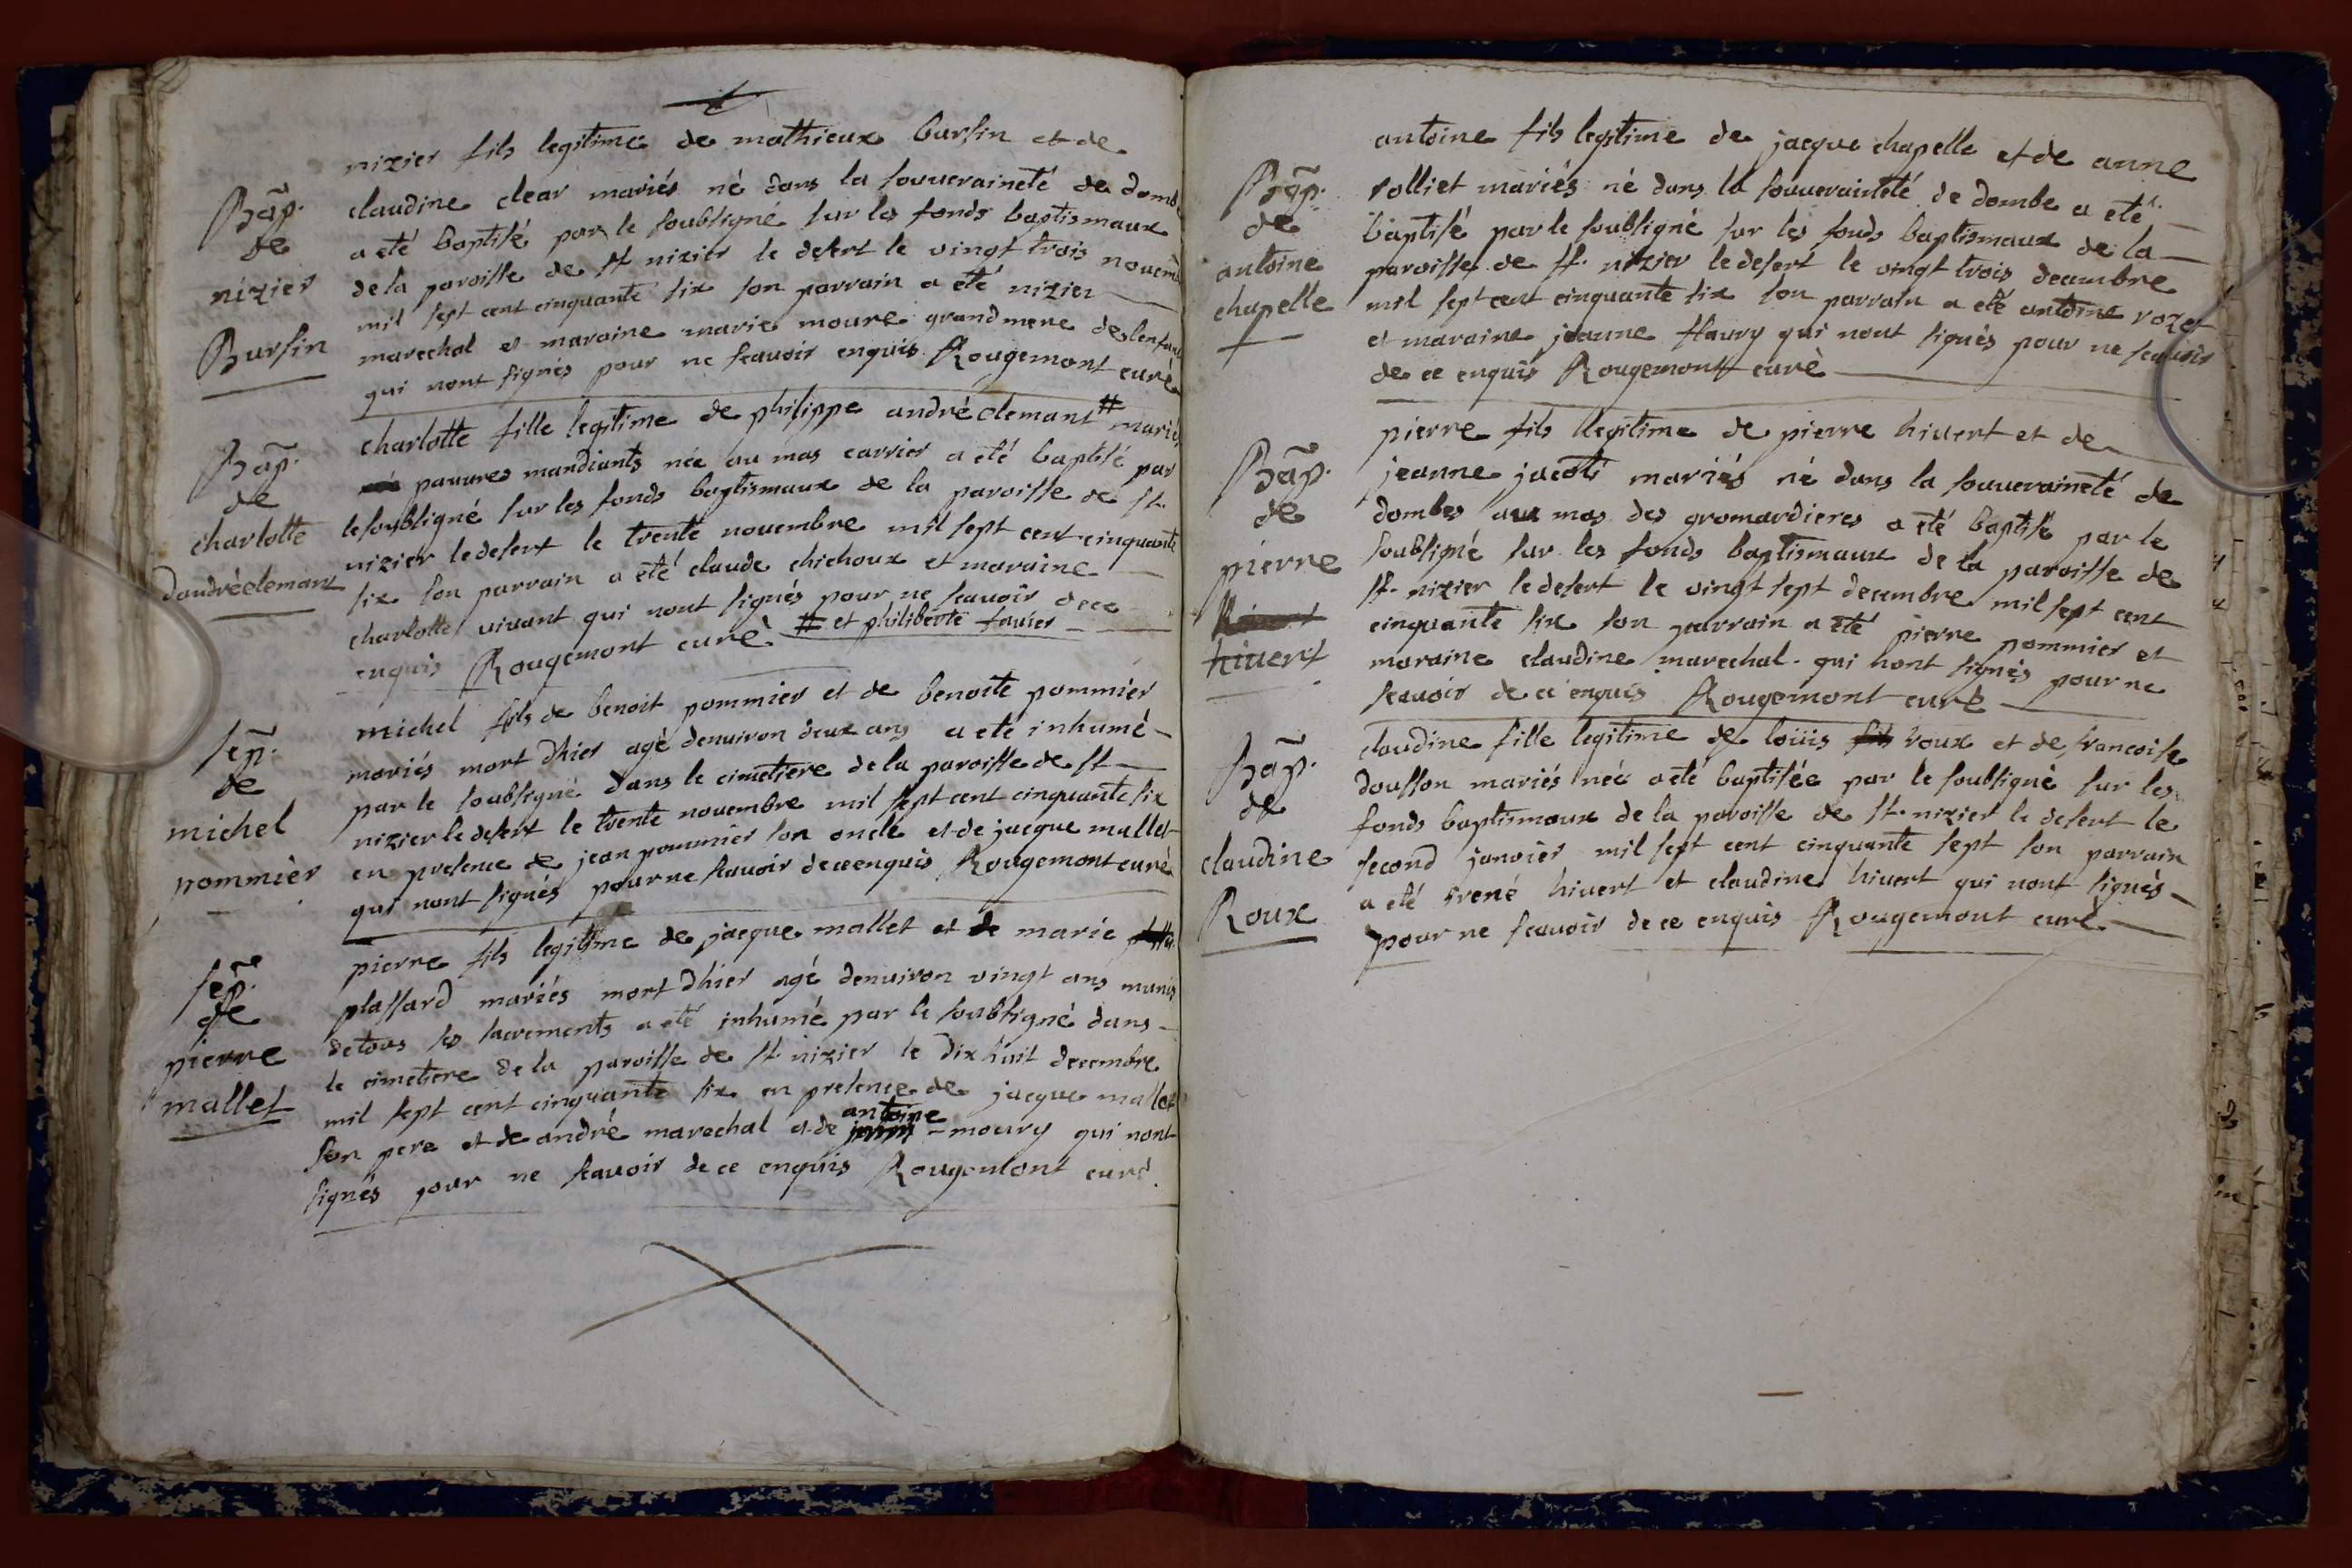 Bap.
de
nizier
Bursin
nizier fils legitime de mathieux bursin et de
claudine clear mariés né dans la souueraineté de domb
a eté baptisé par le soubsigné sur les fonds baptismaux
de la paroisse de st nizier le desert le vingt trois nouemb
mil sept cent cinquante six son parrain a été nizier
marechal et maraine marie moure grand mere de lenfant
qui nont signés pour ne scauoir enquis Rougemont curé
Bap.
de
charlotte
dandréclemant
charlotte fille legitime de philippe andréclemant # mariés
pauures mandiants née au mas carrier a été baptisé par
le soubsigné sur les fonds baptismaux de la paroisse de st.
nizier le desert le trente nouembre mil sept cent cinquante
six son parrain a eté claude chichoux et maraine
charlotte vivant qui nont signés pour ne scauoir dece
enquis Rougemont curé # et philiberte fauier
sep.
de
michel
pommier
michel fils de benoit pommier et de benoite pommier
mariés mort dhier agé denuiron deux ans a ete inhumé
par le soubsigné dans le cimetiere de la paroisse de st
nizier le desert le trente nouembre mil sept cent cinquante six
en presence de jean pommier son oncle et de jacque mallet
qui nont signés pour ne scauoir dece enquis Rougemont curé
sep.
de
pierre
mallet
pierre fils legitime de jacque mallet et de marie
plassard mariés mort dhier agé denuiron vingt ans munis
de tous les sacrements a eté inhumé par le soubsigné dans
le cimetiere de la paroisse de st. nizier le dix huit decembre
mil sept cent cinquante six en presence de jacque mallet
son pere et de andré marechal et de antoine moury qui nont
signés pour ne scauoir de ce enquis Rougemont curé.
Bap.
de
antoine
chapelle
antoine fils legitime de jacque chapelle et de anne
rolliet mariés né dans la souueraineté de dombe a eté
baptisé par le soubsigné sur les fonds baptismaux de la
paroisse de st. nizier le desert le vingt trois decembre
mil sept cent cinquante six son parrain a eté antoine rozet
et maraine jeanne fleury qui nont signés pour ne scauoir
de ce enquis Rougemont curé
Bap.
de
pierre
hiuert
pierre fils legitime de pierre hiuert et de
jeanne jacoti mariés né dans la souueraineté de
dombes aux mas des gromardieres a eté baptisé par le
soubsigné sur les fonds baptismaux de la paroisse de
st. nizier le desert le vingt sept decembre mil sept cent
cinquante six son parrain a eté pierre pommier et
maraine claudine marechal qui nont signés pour ne
scauoir de ce enquis Rougemont curé
Bap.
de
claudine
Roux
claudine fille legitime de loüis roux et de francoise
dousson mariés née a eté baptisée par le soubsigné sur les
fonds baptismaux de la paroisse de st. nizier le desert le
second januier mil sept cent cinquante sept son parrain
a eté rené hiuert et claudine hiuert qui nont signés
pour ne scauoir de ce enquis Rougemont curé